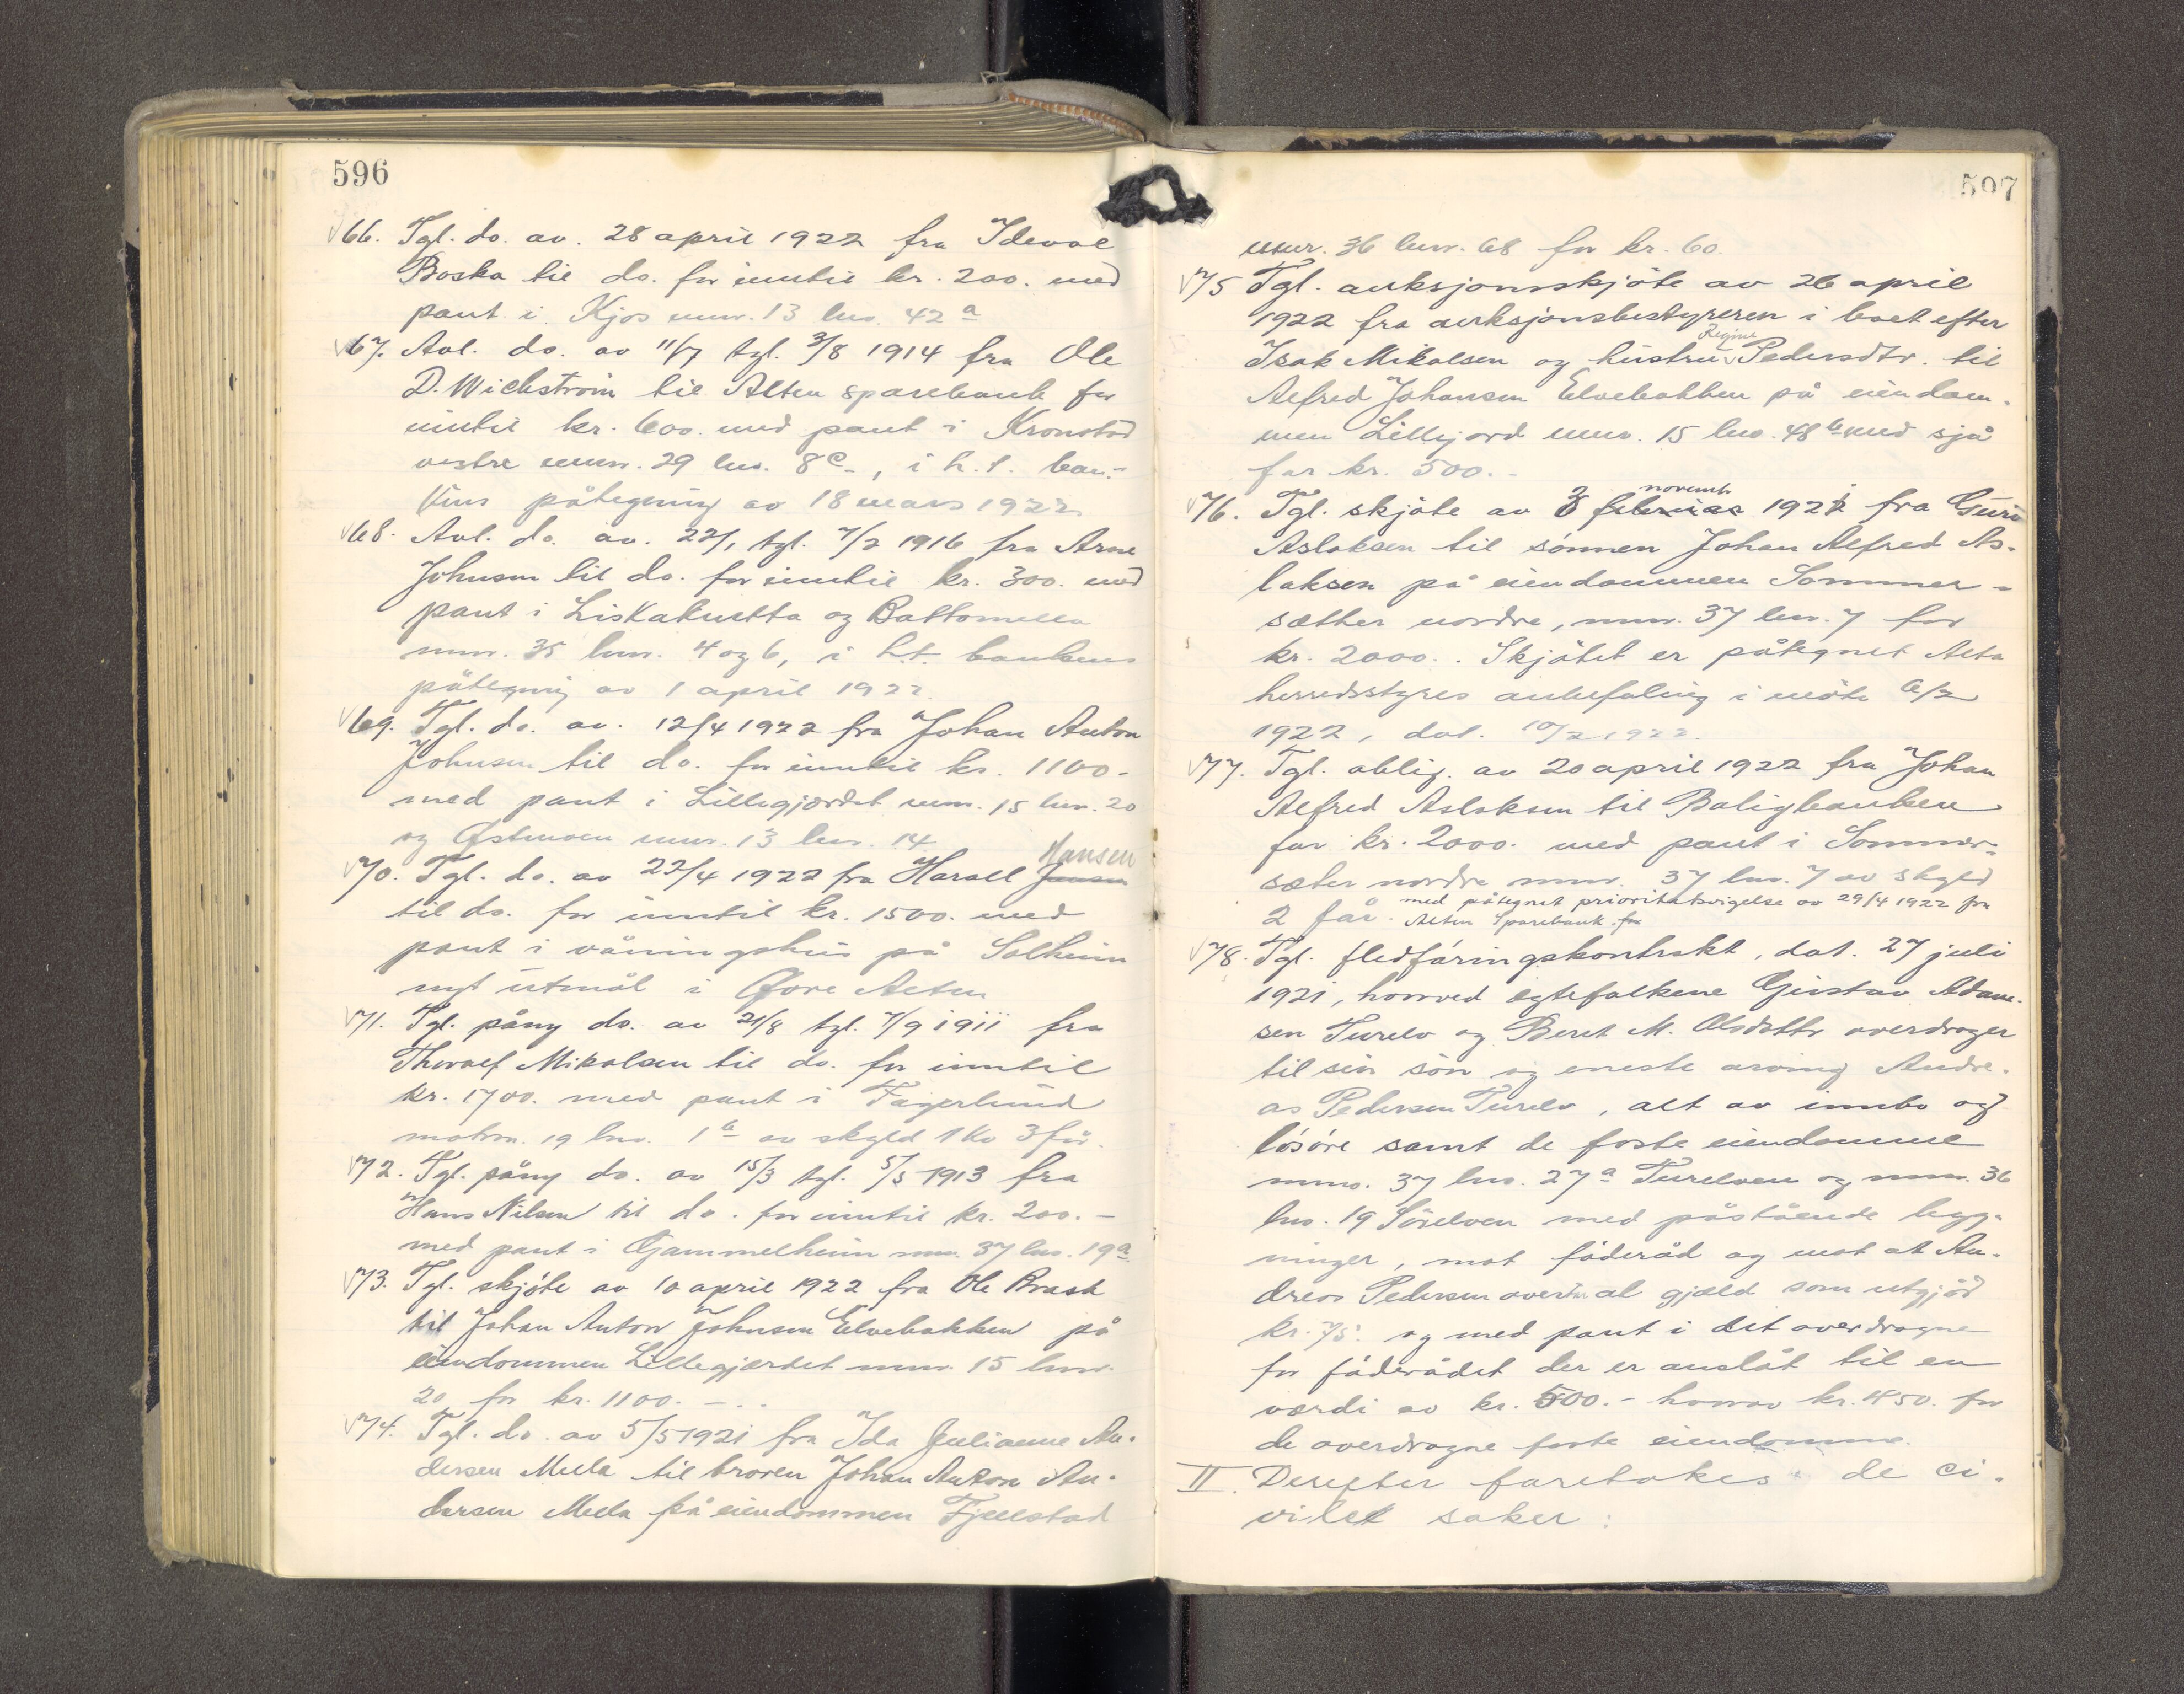 596
66. Tgl. do. av. 28 april 1922 fra Ideval
Boska til do. for inntil kr. 200. med
pant i Kjos mnr. 13 lnr. 42 a
67. Avl. do. av 11/7 tgl. 3/8 1914 fra Ole
D. Wickstrøm til Alten sparebank for
inntil kr. 600. med pant i Kronstad
vestre mnr. 29 lnr. 8 c, i h.t. ban-
kens påtegning av 18 mars 1922
68. Avl. do. av. 22/1 tgl. 7/2 1916 fra Arne
Johnsen til do. for inntil kr. 300. med
pant i og
mnr. 35 lnr. 4 og 6, i h.t. bankens
påtegning av 1 april 1922.
69. Tgl. do. av. 12/4 1922 fra Johan Anton
Johnsen til do. for inntil kr. 1100.-
med pant i Lillegjærdet mnr. 15 lnr. 20
og Østmoen mnr. 13 lnr. 14
Hansen
70. Tgl. do. av 22/4 1922 fra Harall Jensen
til do. for inntil kr. 1500. med
pant i våningshus på Solheim
nyt utmål i Øvre Alten
71. Tgl. påny do. av 21/8 tgl. 7/9 1911 fra
Thoralf Mikalsen til do. for inntil
kr. 1700. med pant i Fagerlund
matrn. 19 lnr. 1 b av skyld 1 kr 3 før.
72. Tgl. påny do. av 15/3 tgl. 5/5 1913 fra
Hans Nilsen til do. for inntil kr. 200.-
med pant i Gammelheim mnr. 37 lnr. 19 a.
73. Tgl. skjøte av 10 april 1922 fra Ole Brask
til Johan Anton Johnsen Elvebakken på
eiendommen Lillegjerdet mnr. 15 lnr.
20 for kr. 1100.-..
74. Tgl. do. av 5/5 1921 fra Ida Julianne An-
dersen Mella til broren Johan Anton An-
dersen Mella på eiendommen Fjellstad
597
mnr. 36 lnr. 68 for kr. 60.
75 Tgl. auksjonsskjøte av 26 april
1922 fra auksjonsbestyreren i boet efter
Regine
Isak Mikalsen og hustru Pedersdtr. til
Alfred Johansen Elvebakken på eiendom-
men Lillejord mnr. 15 lnr. 48 b med sjå
for kr. 500.-
novemb
76. Tgl. skjøte av 3 februar 1921 fra Guru
Aslaksen til sønnen Johan Alfred As-
laksen på eiendommen Sommer-
sætter nordre, mnr. 37 lnr. 7 for
kr. 2000.. Skjøtet er påtegnet Alta
herredsstyres anbefaling i møte 6/2
1922, dat. 10/2 1922.
77. Tgl. oblig. av 20 april 1922 fra Johan
Alfred Aslaksen til Boligbanken
for kr. 2000. med pant i Sommer-
sæter nordre mnr. 37 lnr. 7 av skyld
med påtegnet prioritetsvigelse av 29/4 1922 fra
2 før. Alten Sparebank. for
78. Tgl. fledføringskontrakt, dat. 27 juli
1921, hvorved egtefolkene Gustav Adam-
sen Turelv og Beret M. Olsdattr overdrager
til sin søn og eneste arving Andre-
as Pedersen Turelv, alt av innbo og
løsøre samt de faste eiendomme
mnr. 37 lnr. 27 a Turelven og mnr. 36
lnr. 19 Sørelven med påstående byg-
ninger, mot føderåd og mot at An-
dreas Pedersen overtar al gjæld som utgjør
kr. 75. og med pant i det overdragne
for føderådet der er anslåt til en
værdi av kr. 500.- hvorav kr. 450. for
de overdragne faste eiendomme.
II. Derefter foretakes de ci-
vile saker: